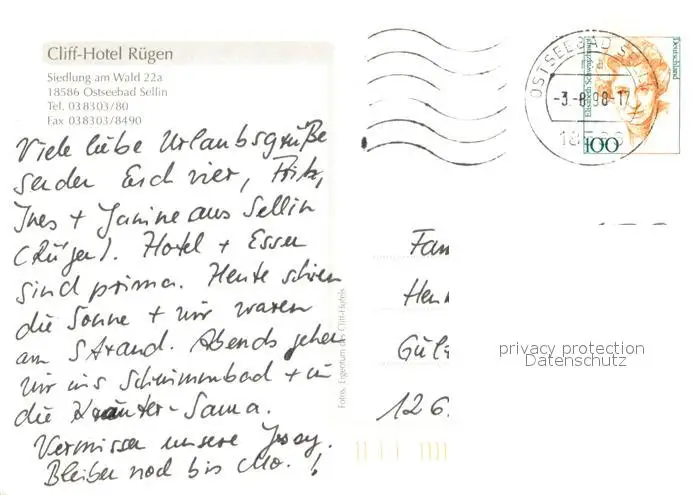 Cliff-Hotel Rügen
Siedlung am Wald 22a
18586 Ostseebad Sellin
Tel. 038303/80
Fax 038303/8490
Viele liebe Urlaubsgrüße
senden Euch vier, Fritz,
Ines + Janine aus Sellin
(Rügen). Hotel + Essen
sind prima. Heute schien
die Sonne + wir waren
am Strand. Abends gehen
wir ins Schwimmbad + in
die Kräuter-Sauna.
Vermissen unsere
Bleiben noch bis Mo. !
Fotos: Eigentum des Cliff-Hotels
OSTSEEBAD
-3.-8.98-17
Elisabeth Schwarzhaupt
Deutschland
100
Fam
126
privacy protection
Datenschutz